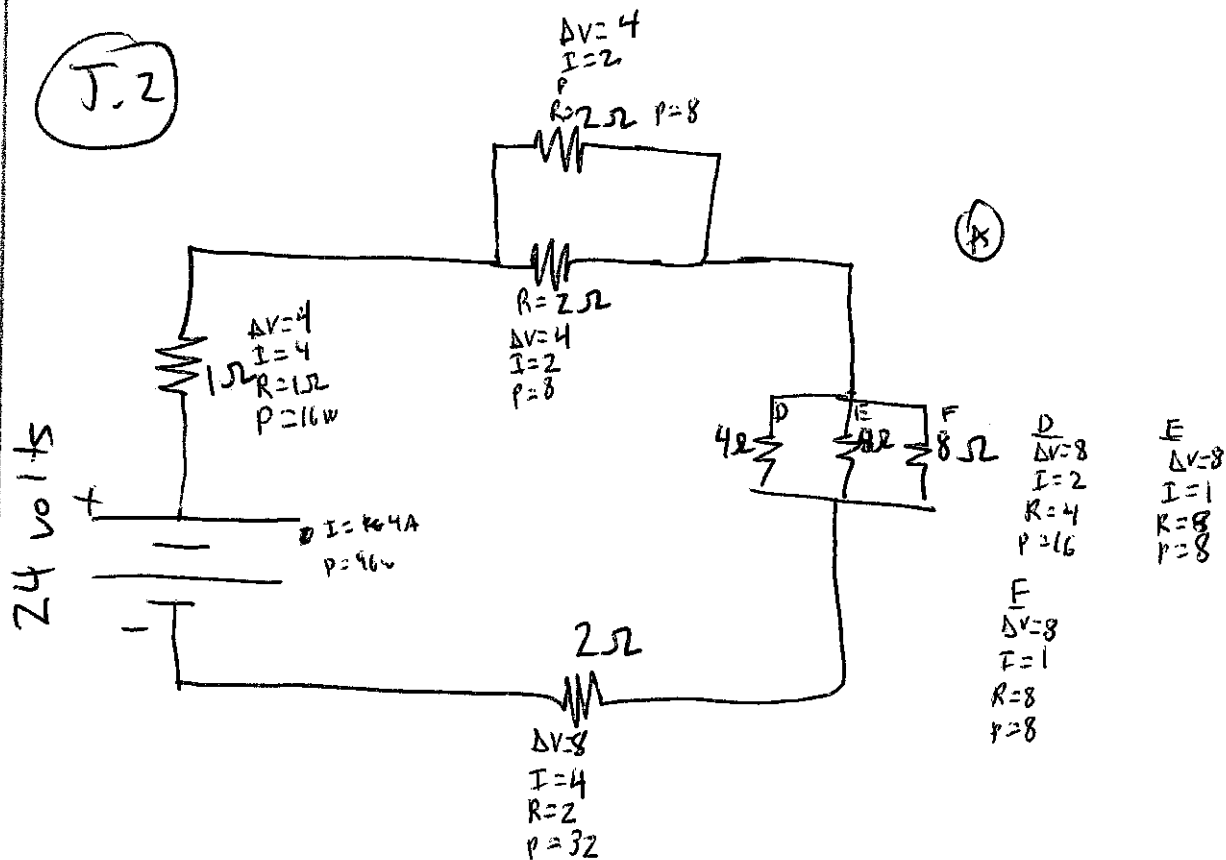 J.2
ΔV= 4
I=2
P
R=2Ω P=8
A
R= 2Ω
ΔV=4
I=2
P=8
1Ω
ΔV=4
I=4
R=1Ω
P=16w
24 volts
+
-
I= 4A
P=96w
D E F
4Ω 8Ω
D
ΔV=8
I=2
R=4
P=16
E
ΔV=8
I=1
R=8
P=8
F
ΔV=8
I=1
R=8
P=8
2Ω
ΔV=8
I=4
R=2
P=32